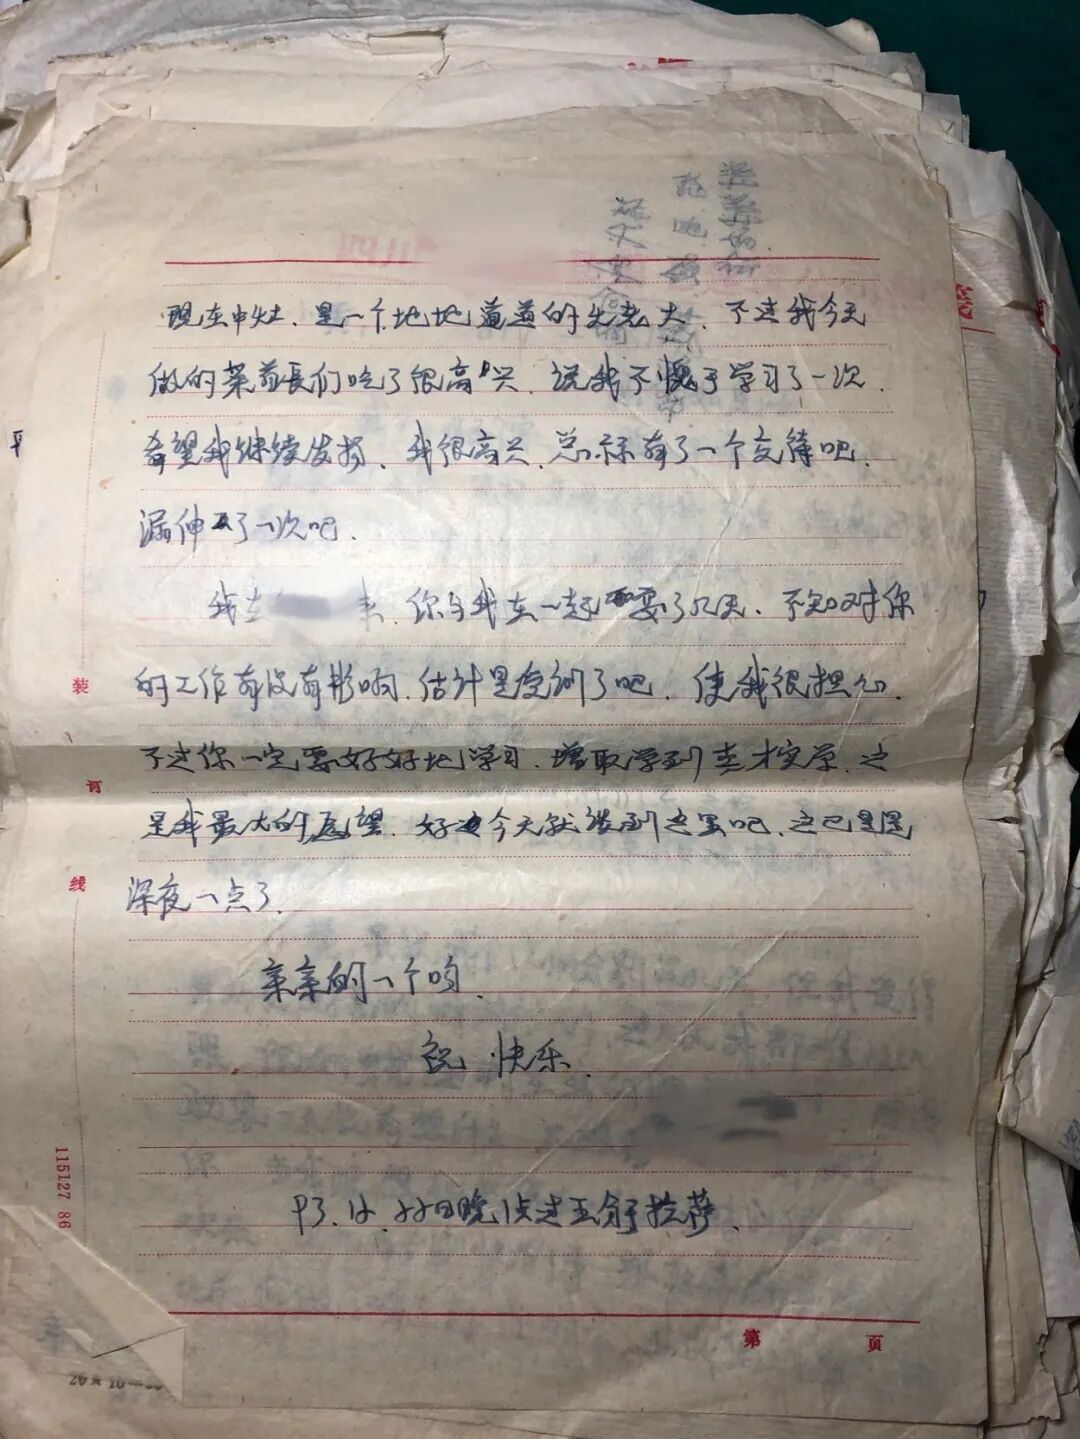 现在中灶、是一个地地道道的老大、不过我今天
做的菜首长们吃了很高兴、说我不愧于学习了一次、
希望我继续发扬、我很高兴、总算有了一个交待吧、
没了一次吧、
我去 你与我在一起耍了几天、不知对你
的工作有没有影响、估计是受训了吧、使我很担心、
不过你一定要好好地学习、增取学到真才实学、这
是我最大的愿望、好 今天就谈到这里吧、这已是是
深夜一点了、
亲亲的一个吻、
祝 快乐、
93、12、22日晚1点过五分于拉萨、
装
订
线
115127 86
第 页